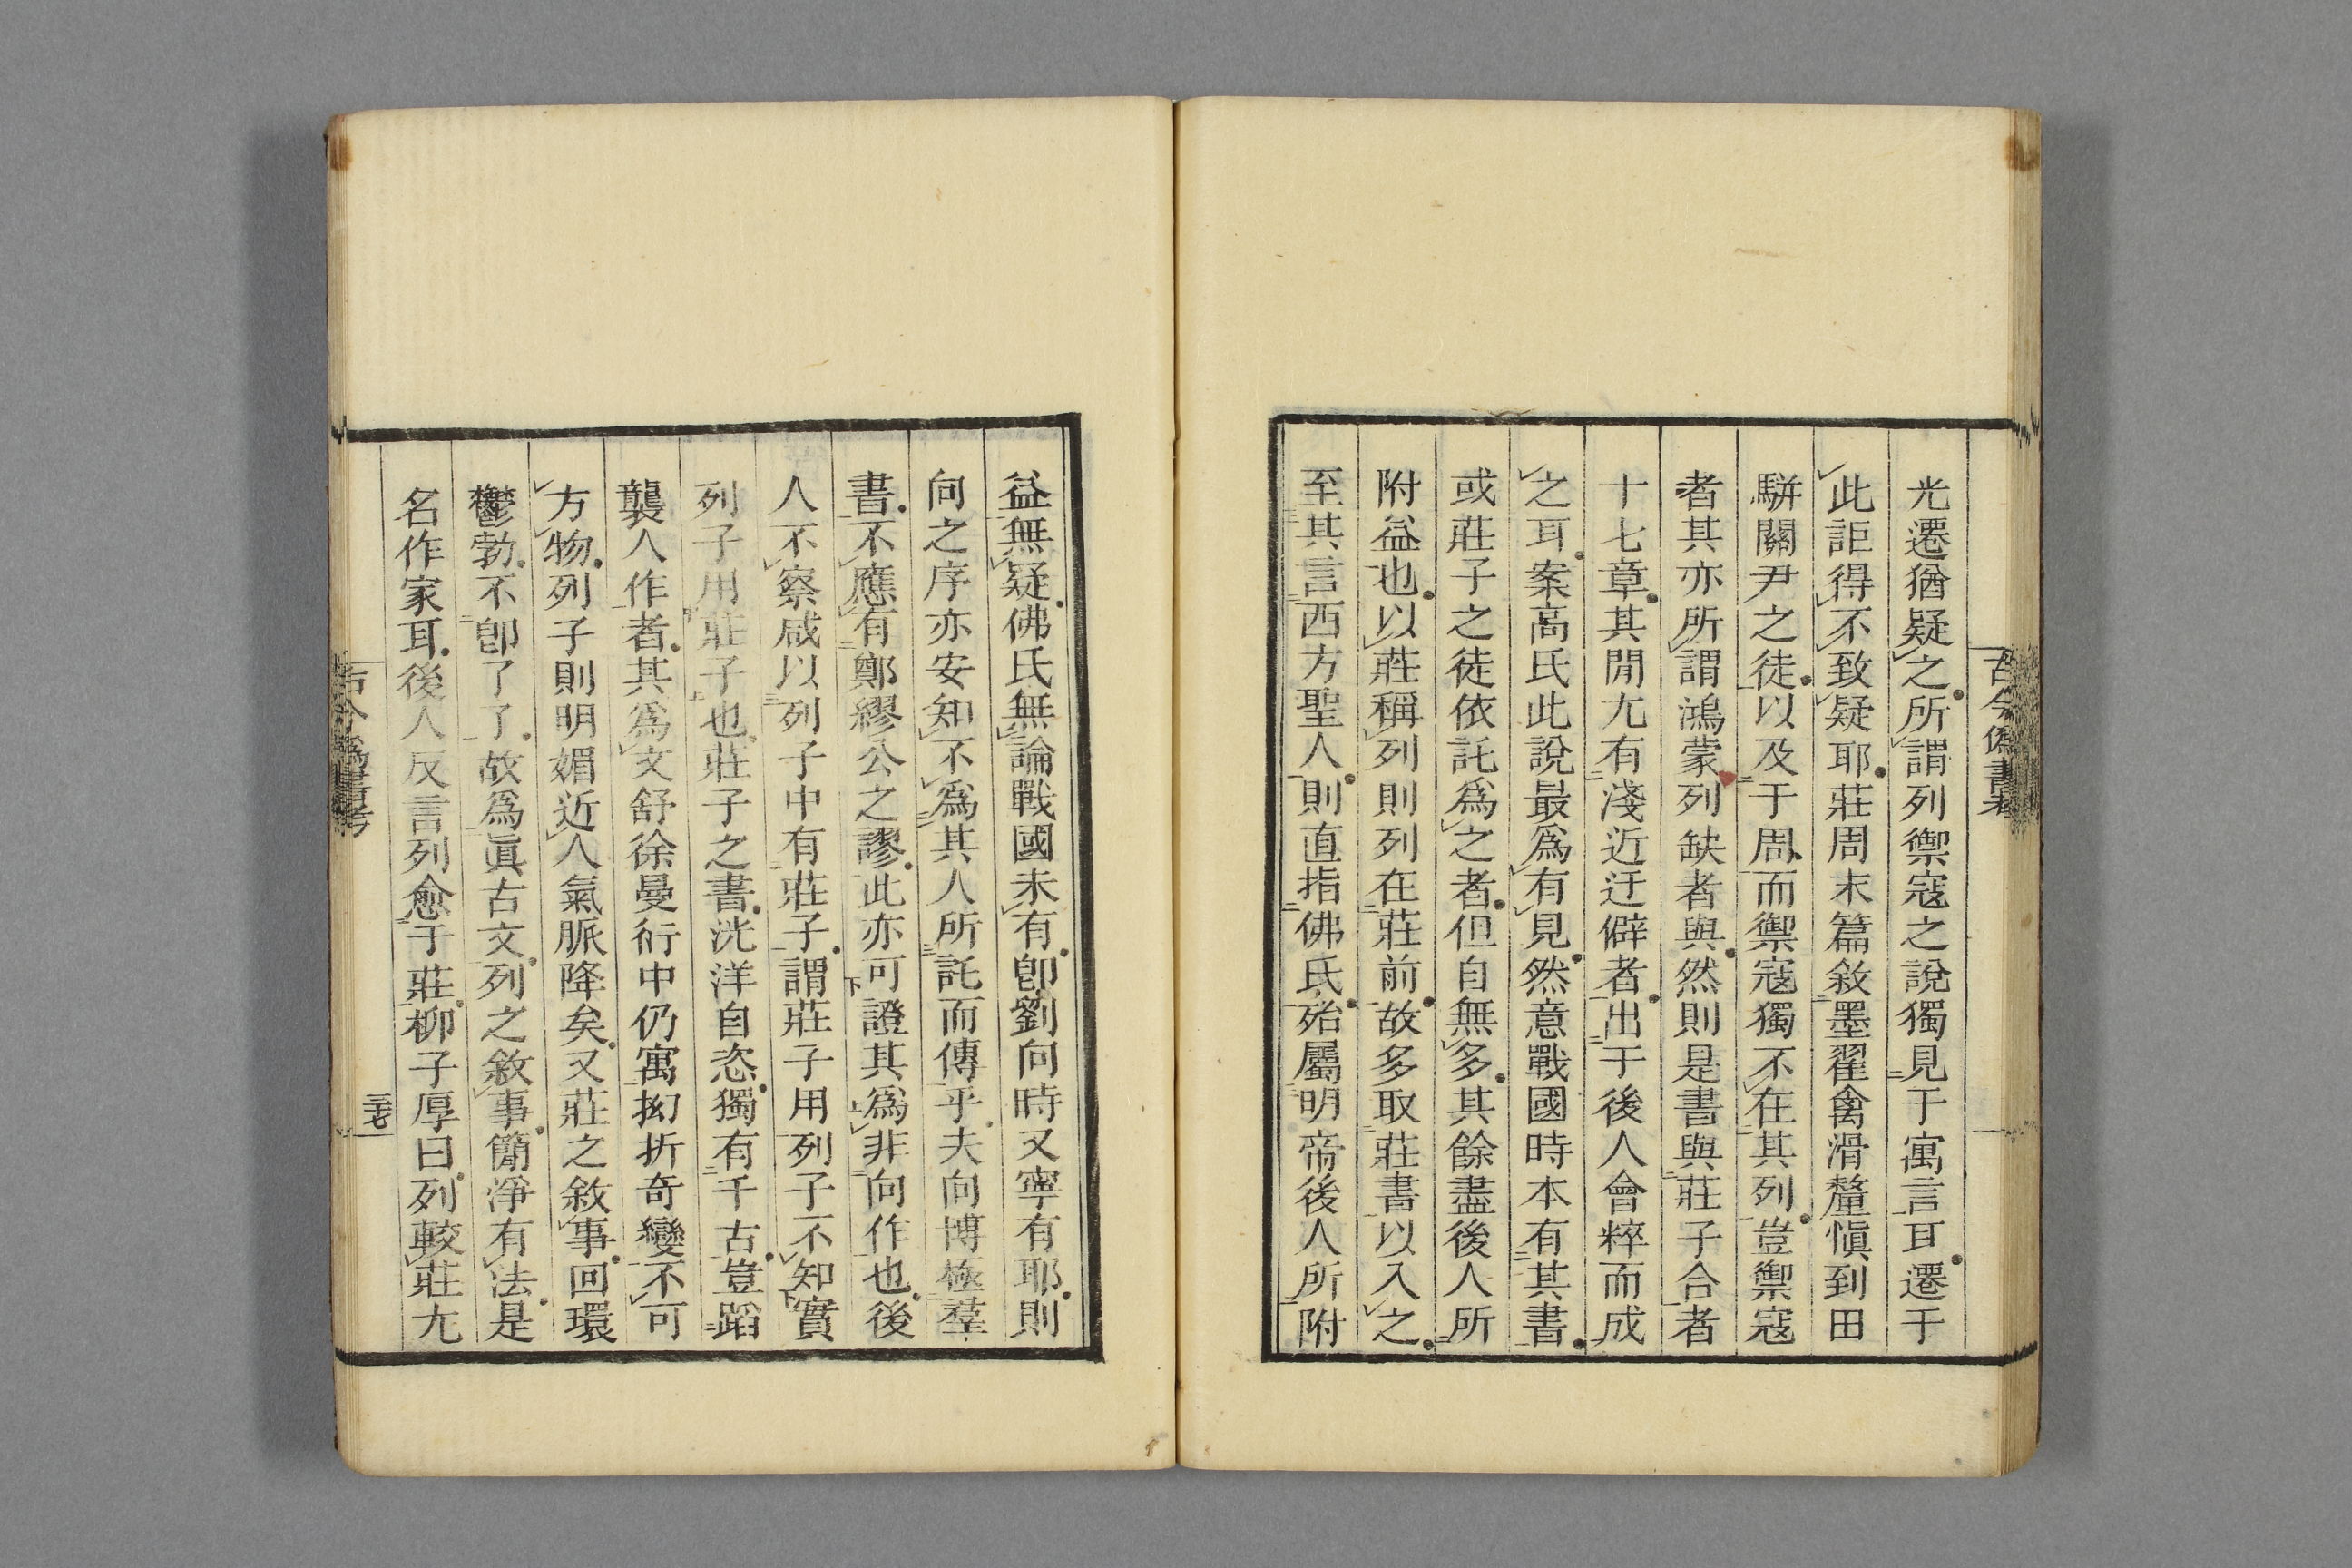 古今僞書考
光遷猶疑之所謂列禦寇之說獨見于寓言耳遷于
此詎得不致疑耶莊周末篇敘墨翟禽滑釐愼到田
騈關尹之徒以及于周而禦寇獨不在其列豈禦寇
者其亦所謂鴻蒙列缺者與然則是書與莊子合者
十七章其閒尤有淺近迂僻者出于後人會粹而成
之耳案高氏此說最爲有見然意戰國時本有其書
或莊子之徒依託爲之者但自無多其餘盡後人所
附益也以莊稱列則列在莊前故多取莊書以入之
至其言西方聖人則直指佛氏殆屬明帝後人所附
益無疑佛氏無論戰國未有卽劉向時又寧有耶則
向之序亦安知不爲其人所託而傳乎夫向博極羣
書不應有鄭繆公之謬此亦可證其爲非向作也後
人不察咸以列子中有莊子謂莊子用列子不知實
列子用莊子也莊子之書洸洋自恣獨有千古豈蹈
襲人作者其爲文舒徐曼衍中仍寓拗折奇變不可
方物列子則明媚近人氣脈降矣又莊之敘事回環
鬱勃不卽了了故爲眞古文列之敘事簡淨有法是
名作家耳後人反言列愈于莊柳子厚曰列較莊尤
古今僞書考
三七